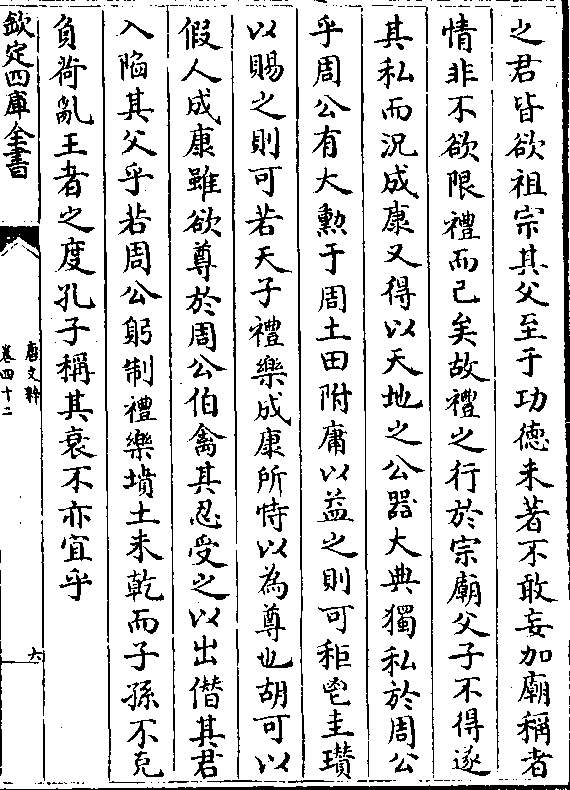 之君皆欲祖宗其父至于功德未著不敢妄加廟稱者
情非不欲限禮而已矣故禮之行於宗廟父子不得遂
其私而況成康又得以天地之公器大典獨私於周公
乎周公有大勲于周土田附庸以益之則可秬鬯圭瓚
以賜之則可若天子禮樂成康所恃以為尊也胡可以
假人成康雖欲尊於周公伯禽其忍受之以出僭其君
入陷其父乎若周公躬制禮樂墳土未乾而子孫不克
負荷亂王者之度孔子稱其衰不亦宜乎
欽定四庫全書
唐文粹
卷四十二
六